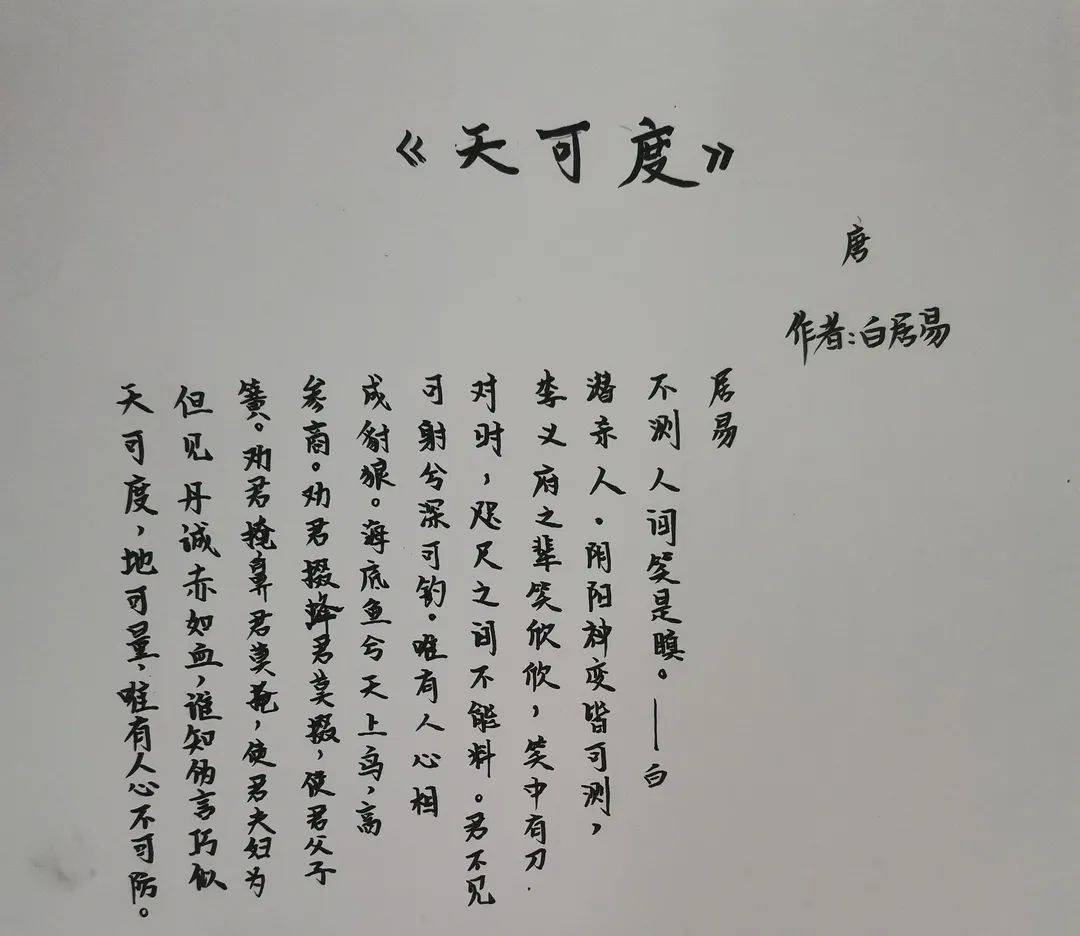 《天可度》
唐
作者:白居易
天可度，地可量，唯有人心不可防。
但见丹诚赤如血，谁知伪言巧似
簧。劝君掩鼻君莫掩，使君夫妇为
参商。劝君掇蜂君莫掇，使君父子
成豺狼。海底鱼兮天上鸟，高
可射兮深可钓。唯有人心相
对时，咫尺之间不能料。君不见
李义府之辈笑欣欣，笑中有刀
潜杀人。阴阳神变皆可测，
不测人间笑是瞋。——白
居易